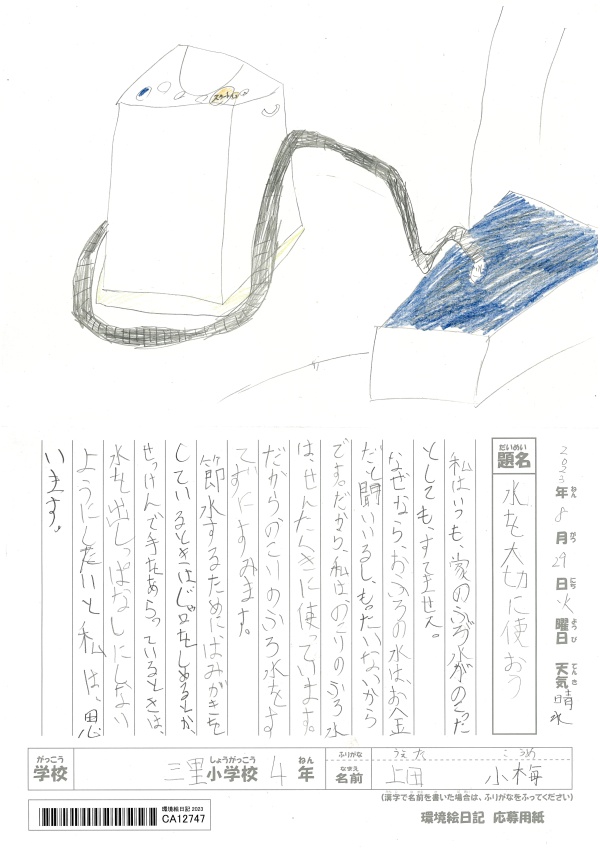 スタート
2023年8月29日火曜日 天気晴れ
ねん がつ にち ようび てんき
だいめい
題名 水を大切に使おう
私はいつも、家のふろ水がのこった
としても、すてません。
なぜなら、おふろの水は、お金
だと聞いいるし、もったいないから
です。だから、私は、のこりのふろ水
は、せんたくきに使っています。
だから、のこりのふろ水をす
てずにすみます。
節水するためにはみがきを
しているときはじゃ口をしめるとか、
せっけんで手をあらっているときは、
水を出しっぱなしにしない
ようにしたいと私は、思
います。
がっこう しょうがっこう ねん
学校 三里小学校 4年
ふりがな うえた こうめ
なまえ
名前 上田 小梅
(漢字で名前を書いた場合は、ふりがなをふってください)
環境絵日記 2023
CA12747
環境絵日記 応募用紙